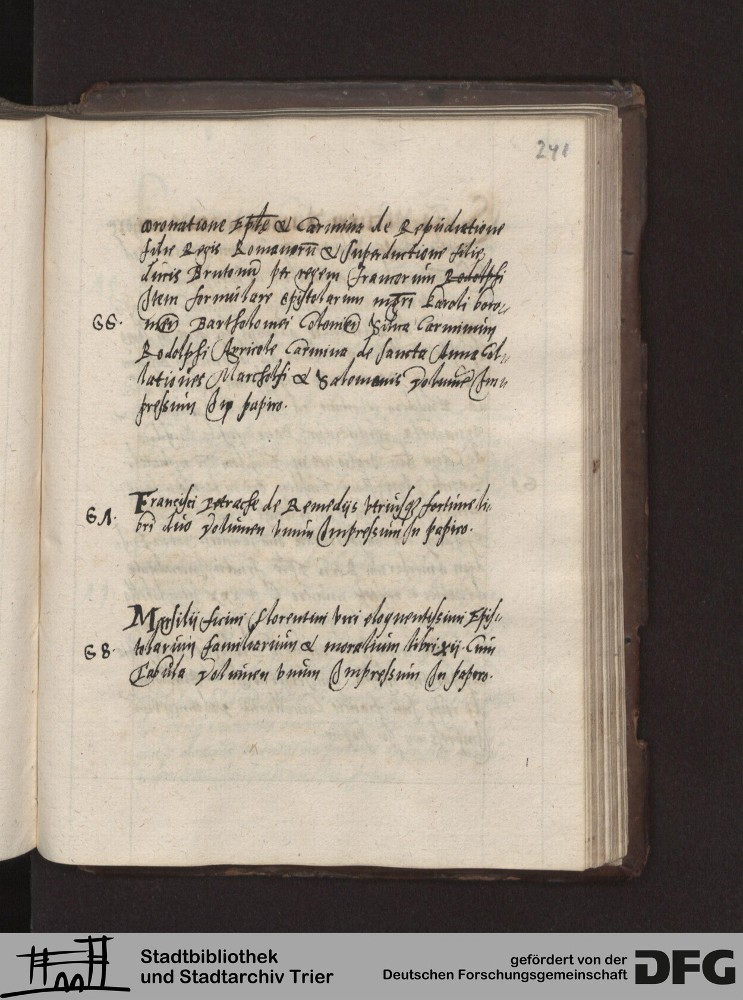 241
coronatione Eiusdem & Carmina de Repudiatione
filie Regis Romanorū & Superductione filie
ducis Brutonū per regem Francorum Rodolphi
Item formulare Epistolarum mgrī Karoli
66. Bartholomei Coloniēn Silua Carminum
Rodolphi Agricole Carmina de sancta Anna Col„
lationes Marcholfi & Salomonis Volumē Im„
pressum In papiro.
67. Francisci petrache de Remedijs Vtriusqȝ fortune li„
bri duo Volumen Vnum Impressum In papiro.
Marsilij ficini Florentini Viri eloquentissimi Epis„
68. tolarum familiarium & moralium libri xij. Cum
Tabula Volumen Vnum Impressum In papiro.
Stadtbibliothek
und Stadtarchiv Trier
gefördert von der
Deutschen Forschungsgemeinschaft
DFG